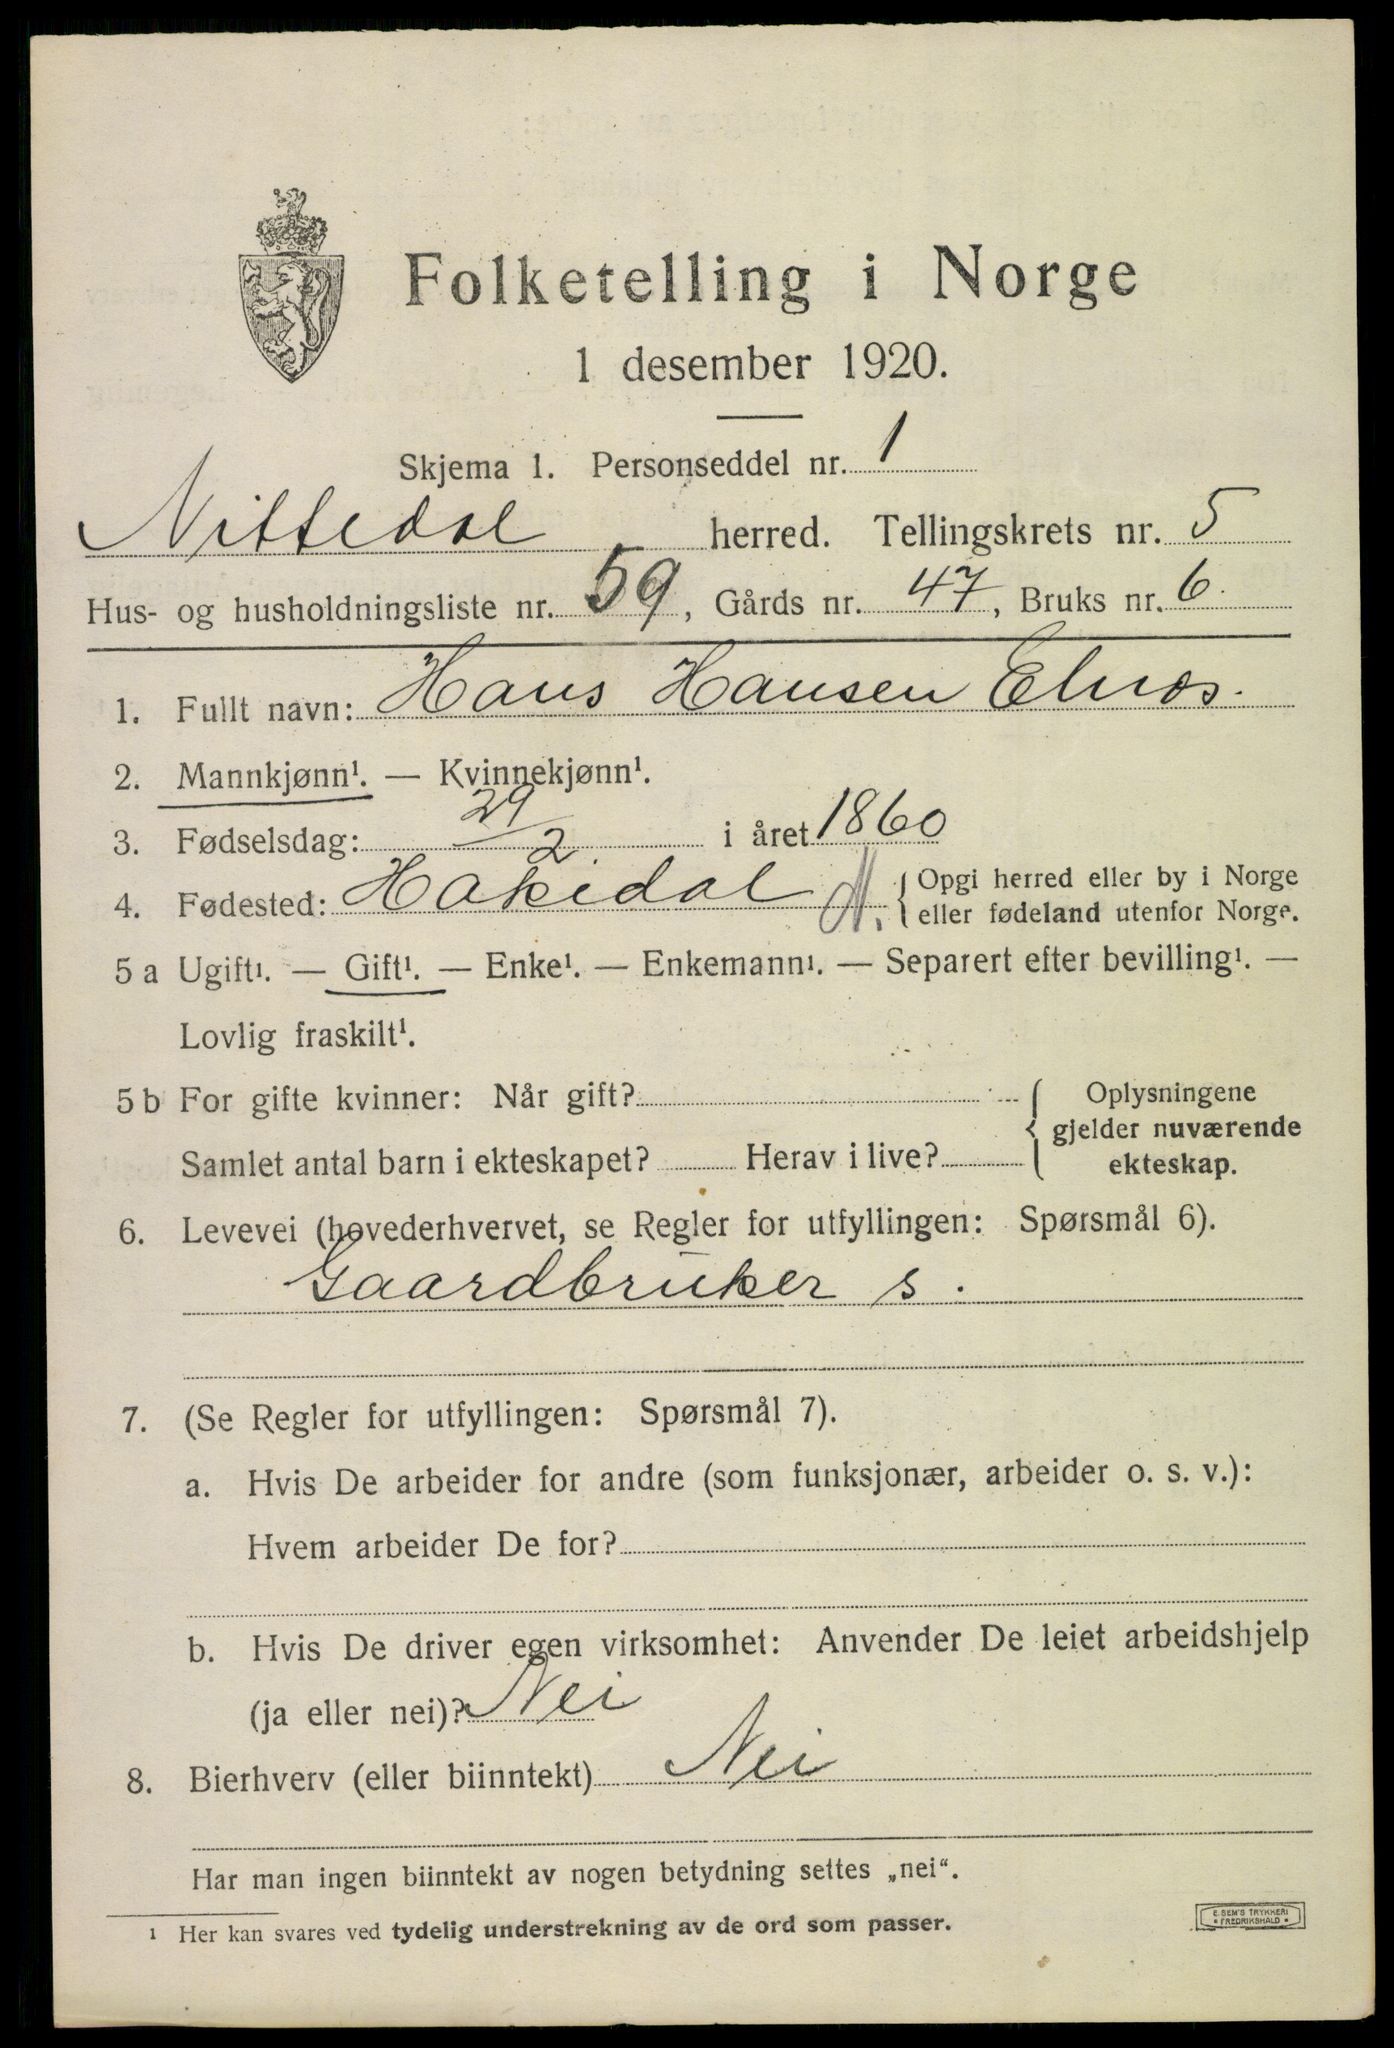 Folketelling i Norge
1 desember 1920.
Skjema 1. Personseddel nr. 1
Nittedal herred. Tellingskrets nr. 5
Hus- og husholdningsliste nr. 59, Gårds nr. 47, Bruks nr. 6.
1. Fullt navn: Hans Hansen Elnæs.
2. Mannkjønn¹. — Kvinnekjønn¹.
3. Fødselsdag: 29/2 i året 1860
4. Fødested: Hakedal A. { Opgi herred eller by i Norge
eller fødeland utenfor Norge.
5 a Ugift¹. — Gift¹. — Enke¹. — Enkemann¹. — Separert efter bevilling¹. —
Lovlig fraskilt¹.
5 b For gifte kvinner: Når gift? { Oplysningene
gjelder nuværende
Samlet antal barn i ekteskapet? Herav i live? ekteskap.
6. Levevei (hovederhvervet, se Regler for utfyllingen: Spørsmål 6).
Gaardbruker s.
7. (Se Regler for utfyllingen: Spørsmål 7).
a. Hvis De arbeider for andre (som funksjonær, arbeider o. s. v.):
Hvem arbeider De for?
b. Hvis De driver egen virksomhet: Anvender De leiet arbeidshjelp
(ja eller nei)? Nei
8. Bierhverv (eller biinntekt) Nei
Har man ingen biinntekt av nogen betydning settes „nei“.
¹ Her kan svares ved tydelig understrekning av de ord som passer.
E. SEM'S TRYKKERI
* FREDRIKSHALD *